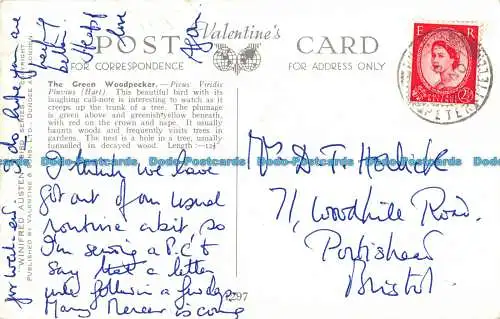 POST
Valentine's
CARD
FOR CORRESPONDENCE
FOR ADDRESS ONLY
The Green Woodpecker.—Picus Viridis
Pluvius (Hart). This beautiful bird with its
laughing call-note is interesting to watch as it
creeps up the trunk of a tree. The plumage
is green above and greenish yellow beneath,
with red on the crown and nape. It usually
haunts woods and frequently visits trees in
gardens. The nest is a hole in a tree, usually
tunnelled in decayed wood. Length :—12½
"WINIFRED AUSTEN
PUBLISHED BY VALENTINE & SONS, LTD., DUNDEE
LONDON
I think we have
got out of our usual
routine a bit, so
I'm sending a P.C. to
say that a letter
will follow in a few days.
Many
is coming
for week-end. I do hope you are
better!
Heaps
love
E R
2½
PETER
Mrs D. T. Horlick
71, Woodhill Road,
Portishead
Bristol.
297
Dodo-Postcards.com